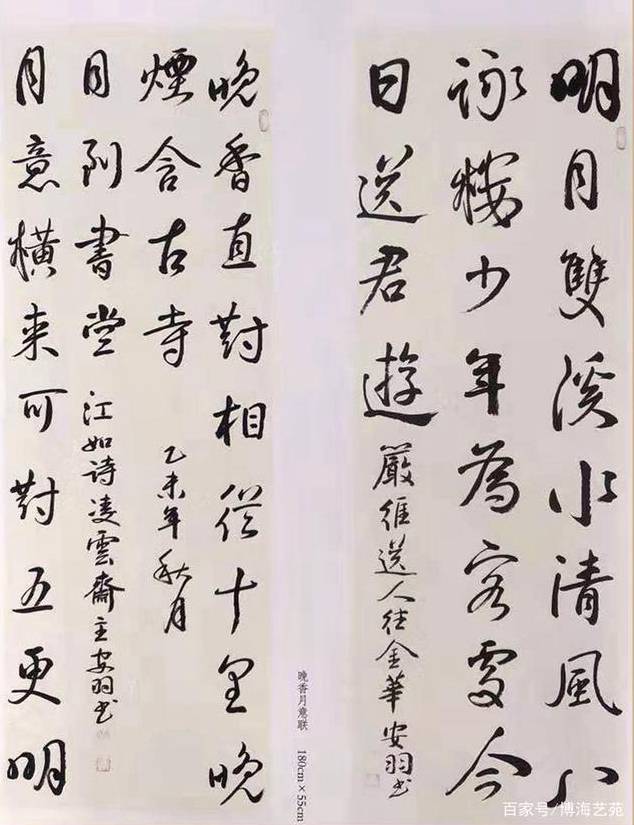 明月雙溪水清風八
詠樓少年為客處今
日送君遊
嚴維送人往金華安羽书
晚香直對相從十里晚
煙含古寺
乙未年秋月
月意橫來可對五更明
月到書堂
江如詩凌雲齋主安羽书
晚香月意联 180cm×55cm
百家号/博海艺苑